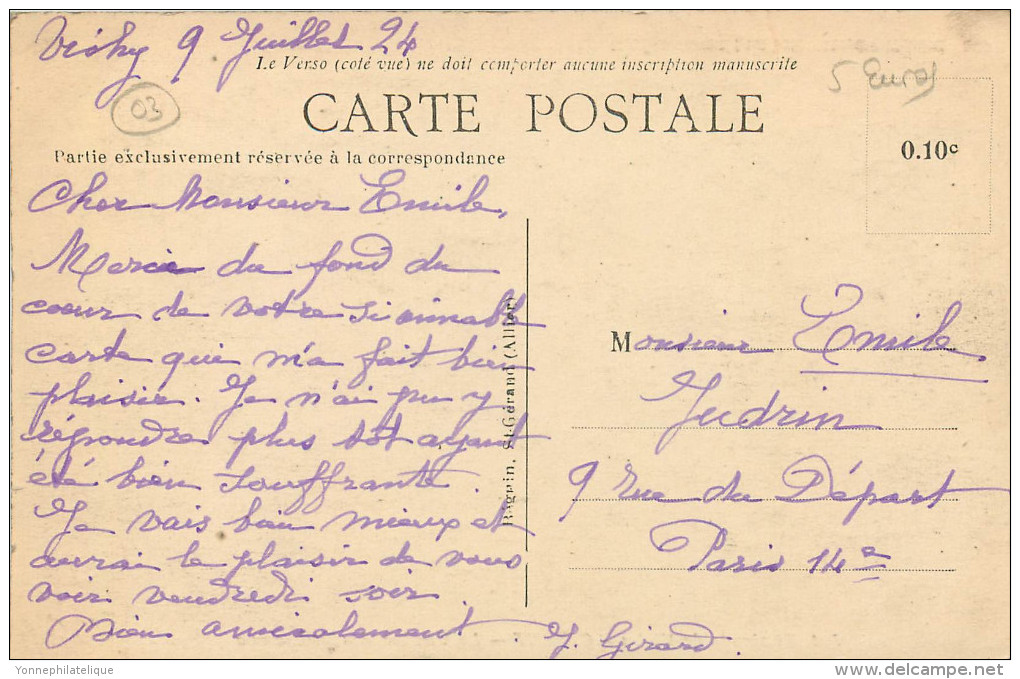 Vichy 9 Juillet 24
Le Verso (coté vue) ne doit comporter aucune inscription manuscrite
5 Euros
03
CARTE POSTALE
0.10c
Partie exclusivement réservée à la correspondance
Cher Monsieur Emile,
Merci du fond du
coeur de votre si aimable
carte qui m'a fait bien
plaisir. Je n'ai pu y
répondre plus tôt ayant
été bien souffrante.
Je vais bien mieux et
aurai le plaisir de vous
voir vendredi soir.
Bien amicalement
J. Girard.
St-Gérand (Allier)
Monsieur Emile
Judrin
9 rue du Départ
Paris 14e
Yonnephilatelique
www.delcampe.net